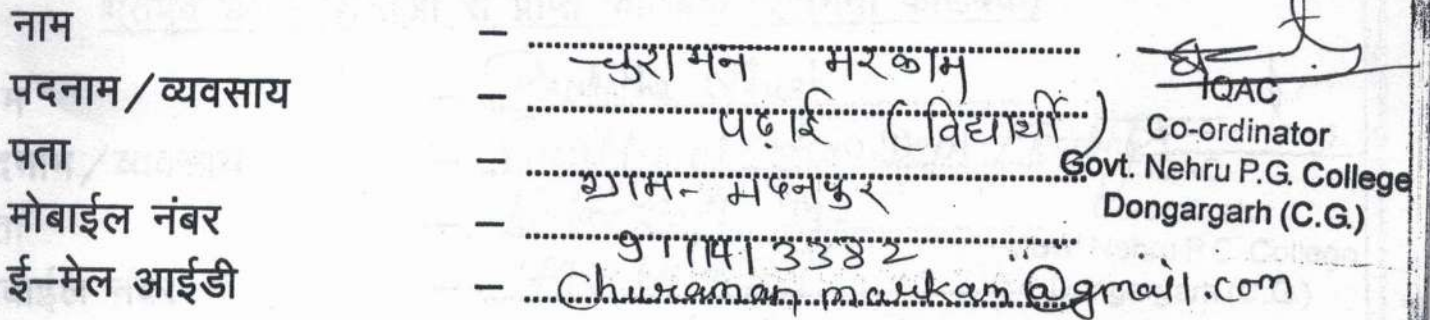 नाम – चुरामन मरकाम
पदनाम/व्यवसाय – पढ़ाई (विद्यार्थी)
पता – ग्राम- मदनपुर
मोबाईल नंबर – 9111413382
ई–मेल आईडी – Churaman markam@gmail.com
IQAC
Co-ordinator
Govt. Nehru P.G. College
Dongargarh (C.G.)